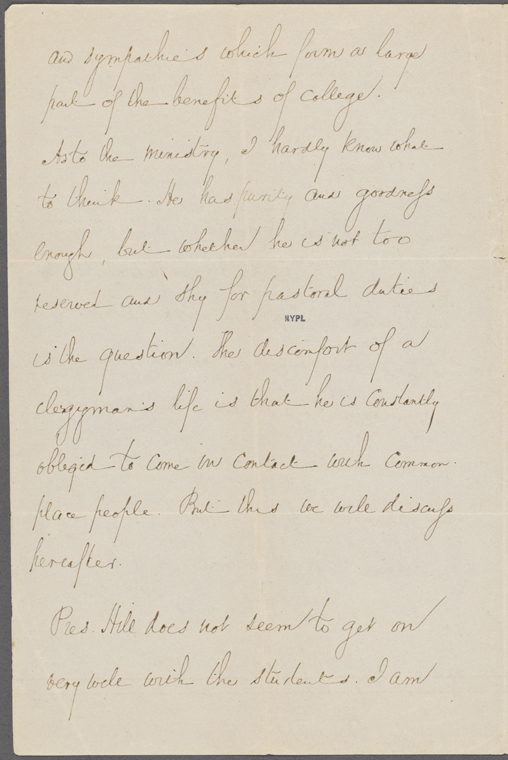 and sympathies which form a large
part of the benefits of college.
As to the ministry, I hardly know what
to think. He has purity and goodness
enough, but whether he is not too
reserved and shy for pastoral duties
NYPL
is the question. The discomfort of a
clergyman's life is that he is constantly
obliged to come in contact with common-
place people. But this we will discuss
hereafter.
Pres. Hill does not seem to get on
very well with the students. I am